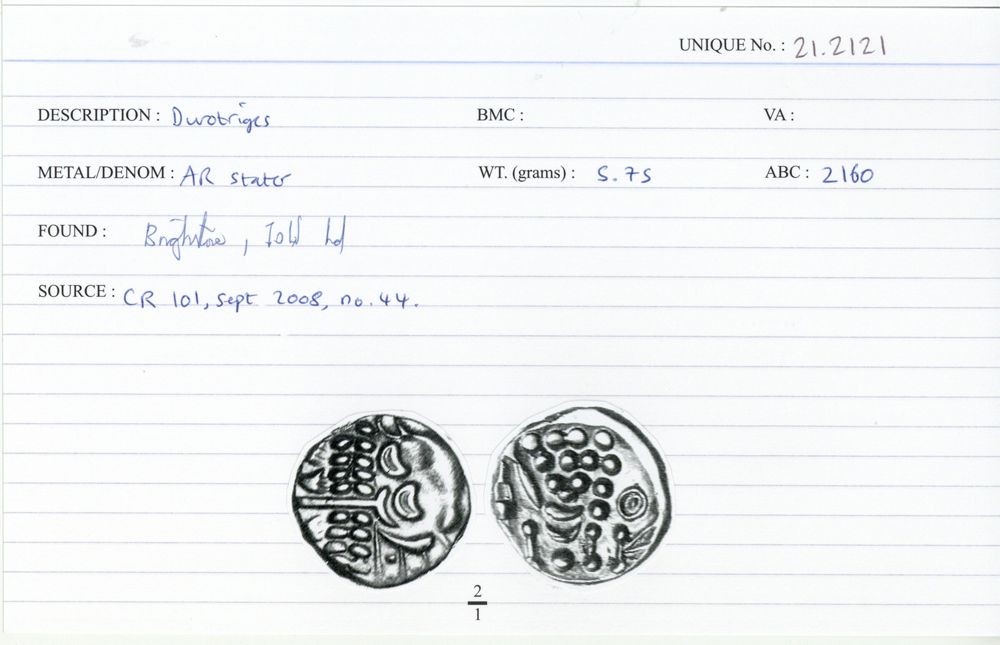 UNIQUE No. : 21.2121
DESCRIPTION : Durotriges BMC : VA :
METAL/DENOM : AR stater WT. (grams) : 5.75 ABC : 2160
FOUND : Brighstone, IoW
SOURCE : CR 101, sept 2008, no. 44.
2
1